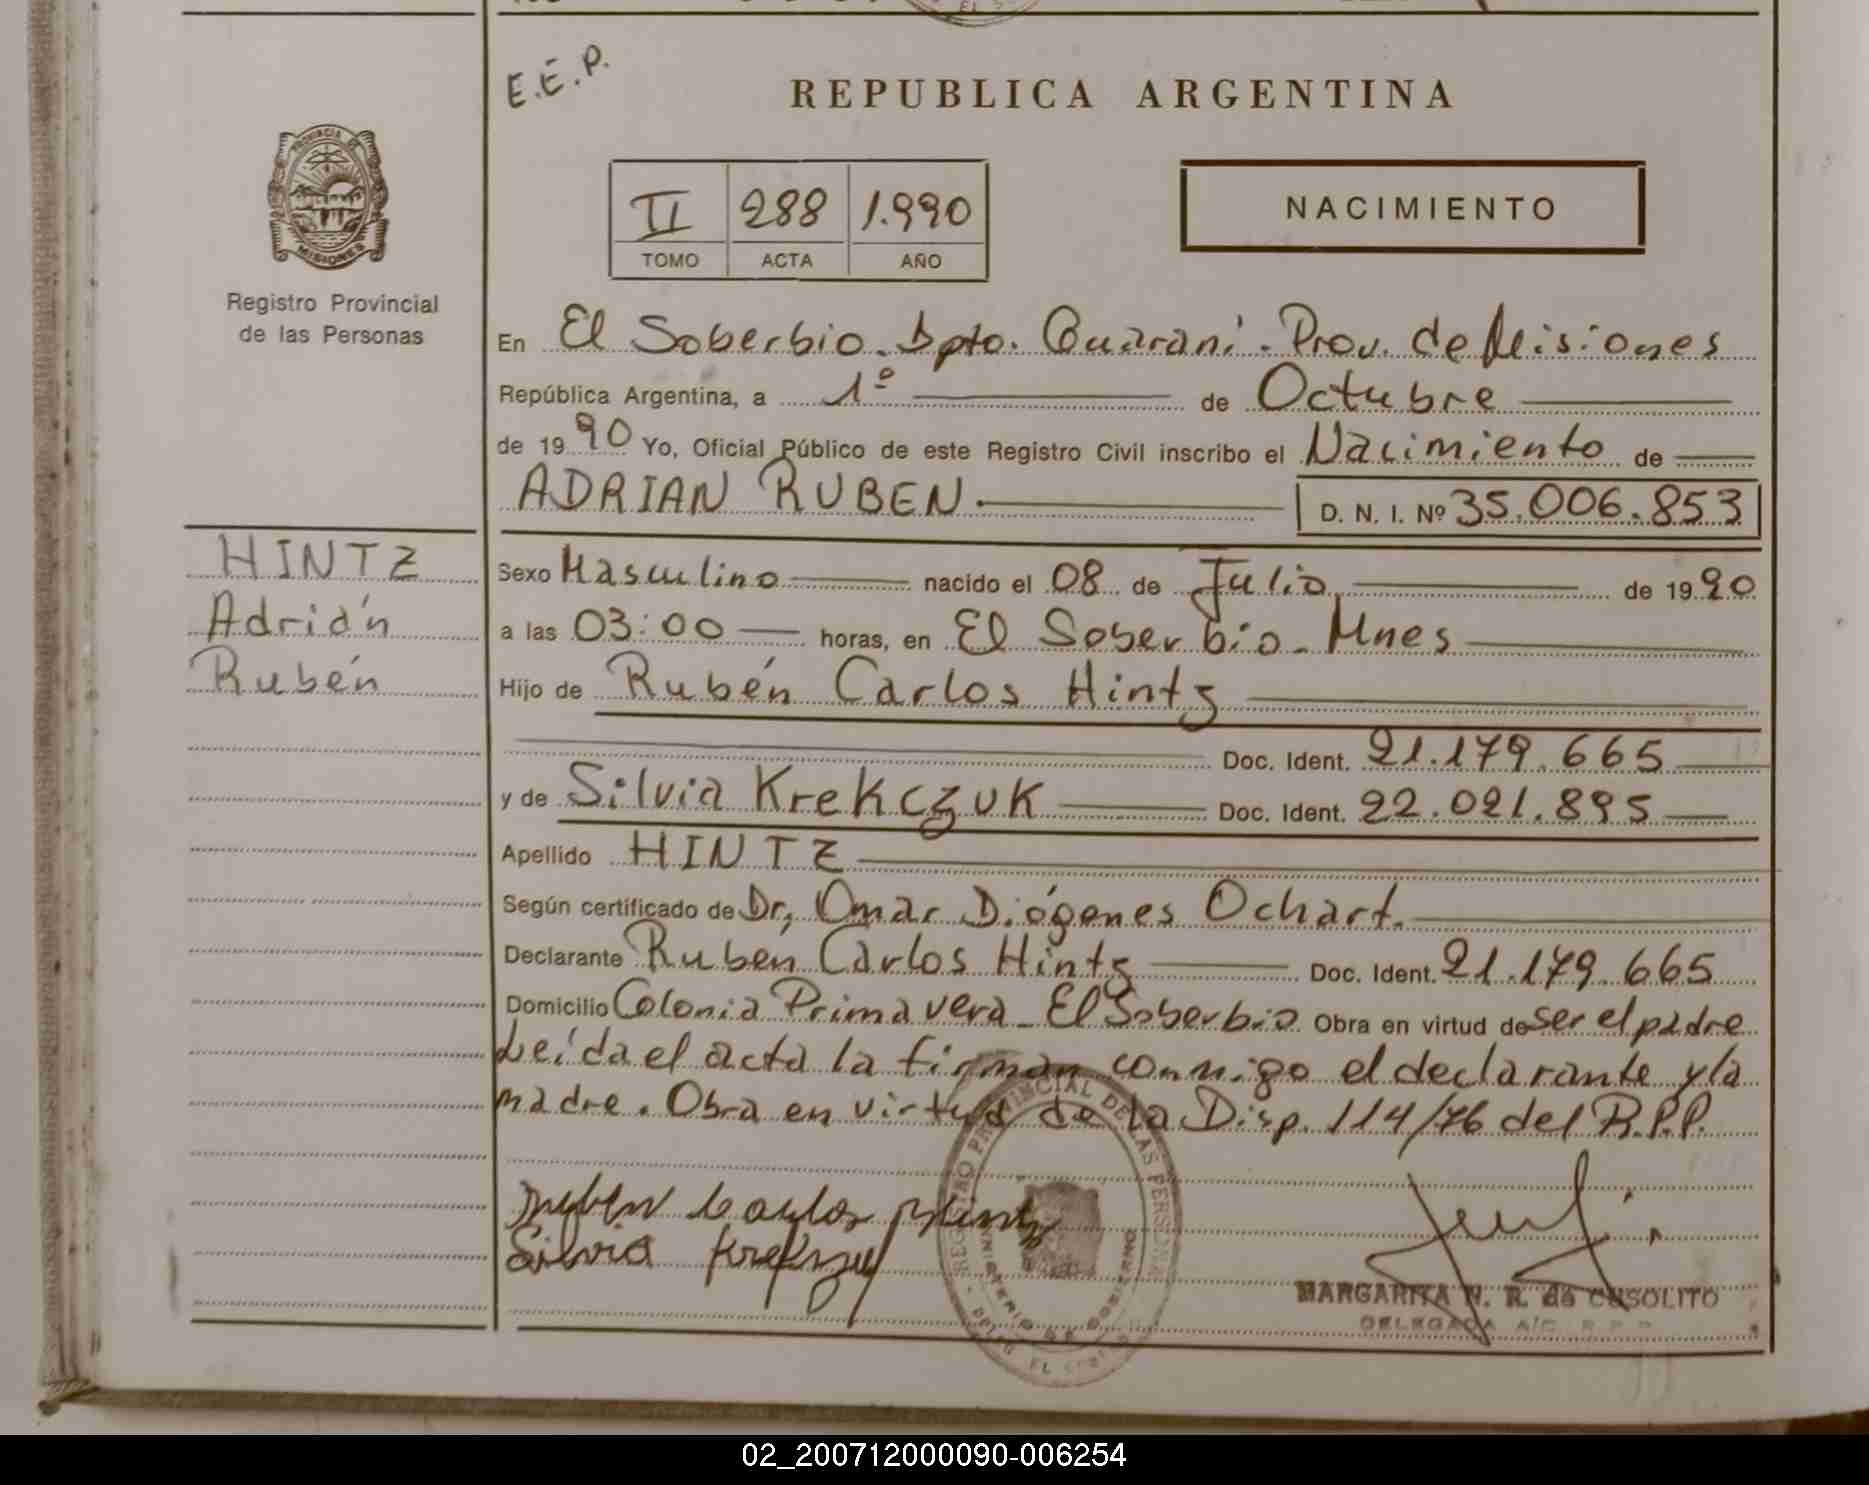 E.E.P.
REPUBLICA ARGENTINA
II 288 1.990
TOMO ACTA AÑO
NACIMIENTO
PROVINCIA DE
MISIONES
Registro Provincial
de las Personas
En El Soberbio. Dpto. Guaraní. Prov. de Misiones
República Argentina, a 1º de Octubre
de 1990 Yo, Oficial Público de este Registro Civil inscribo el Nacimiento de
ADRIAN RUBEN. D. N. I. Nº 35.006.853
HINTZ
Adrián
Rubén
Sexo Masculino nacido el 08 de Julio de 1990
a las 03:00 horas, en El Soberbio. Mnes
Hijo de Rubén Carlos Hintz
Doc. Ident. 21.179.665
y de Silvia Krekczuk Doc. Ident. 22.021.895
Apellido HINTZ
Según certificado de Dr, Omar Diógenes Ochart.
Declarante Rubén Carlos Hintz Doc. Ident. 21.179.665
Domicilio Colonia Primavera - El Soberbio Obra en virtud de ser el padre
Leída el acta la firman conmigo el declarante y la
madre. Obra en virtud de la Disp. 114/76 del R.P.P.
REGISTRO PROVINCIAL DE LAS PERSONAS
MINISTERIO DE GOBIERNO
Ruben Carlos Hintz
Silvia
MARGARITA N. R. de CUSOLITO
DELEGADA A/C R.P.P.
02_200712000090-006254